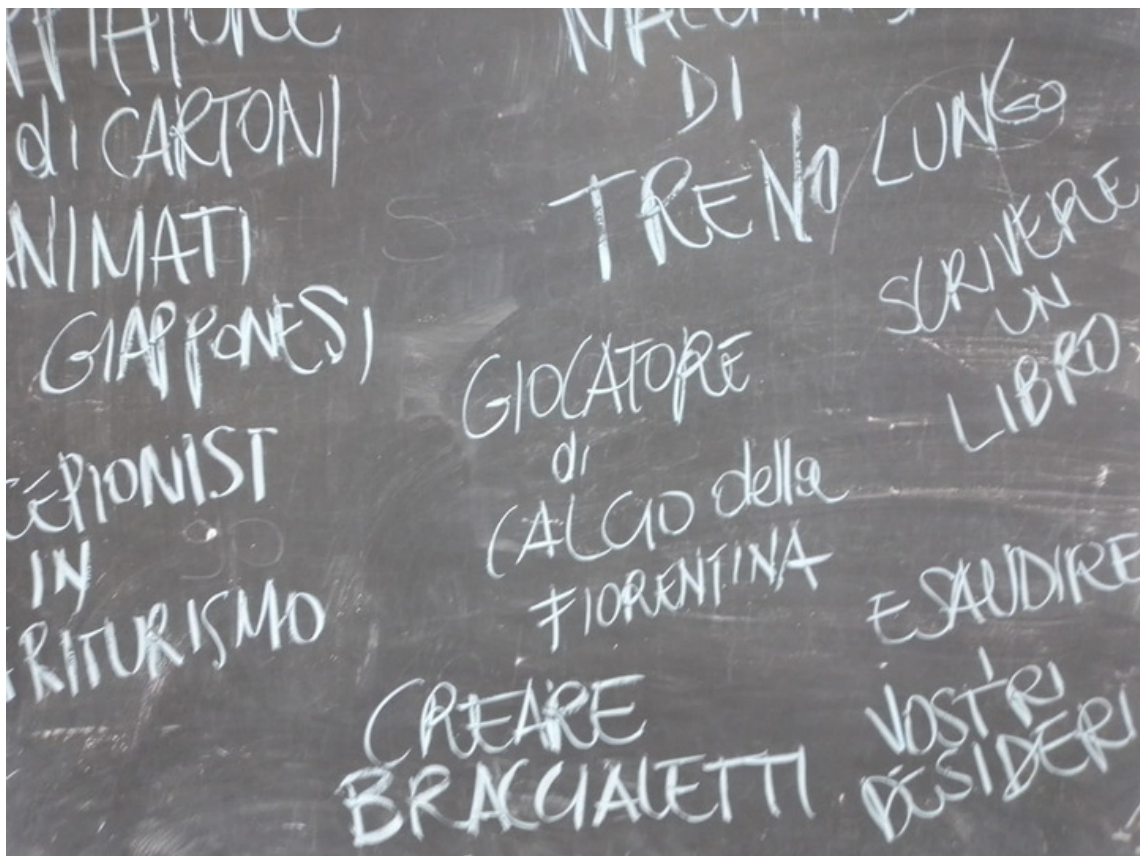 di CARTONI
ANIMATI
GIAPPONESI
IN
GRITURISMO
DI
TRENO
GIOCATORE
di
CALCIO della
FIORENTINA
CREARE
BRACCIALETTI
LUNGO
SCRIVERE
UN
LIBRO
ESAUDIRE
I
VOSTRI
DESIDERI